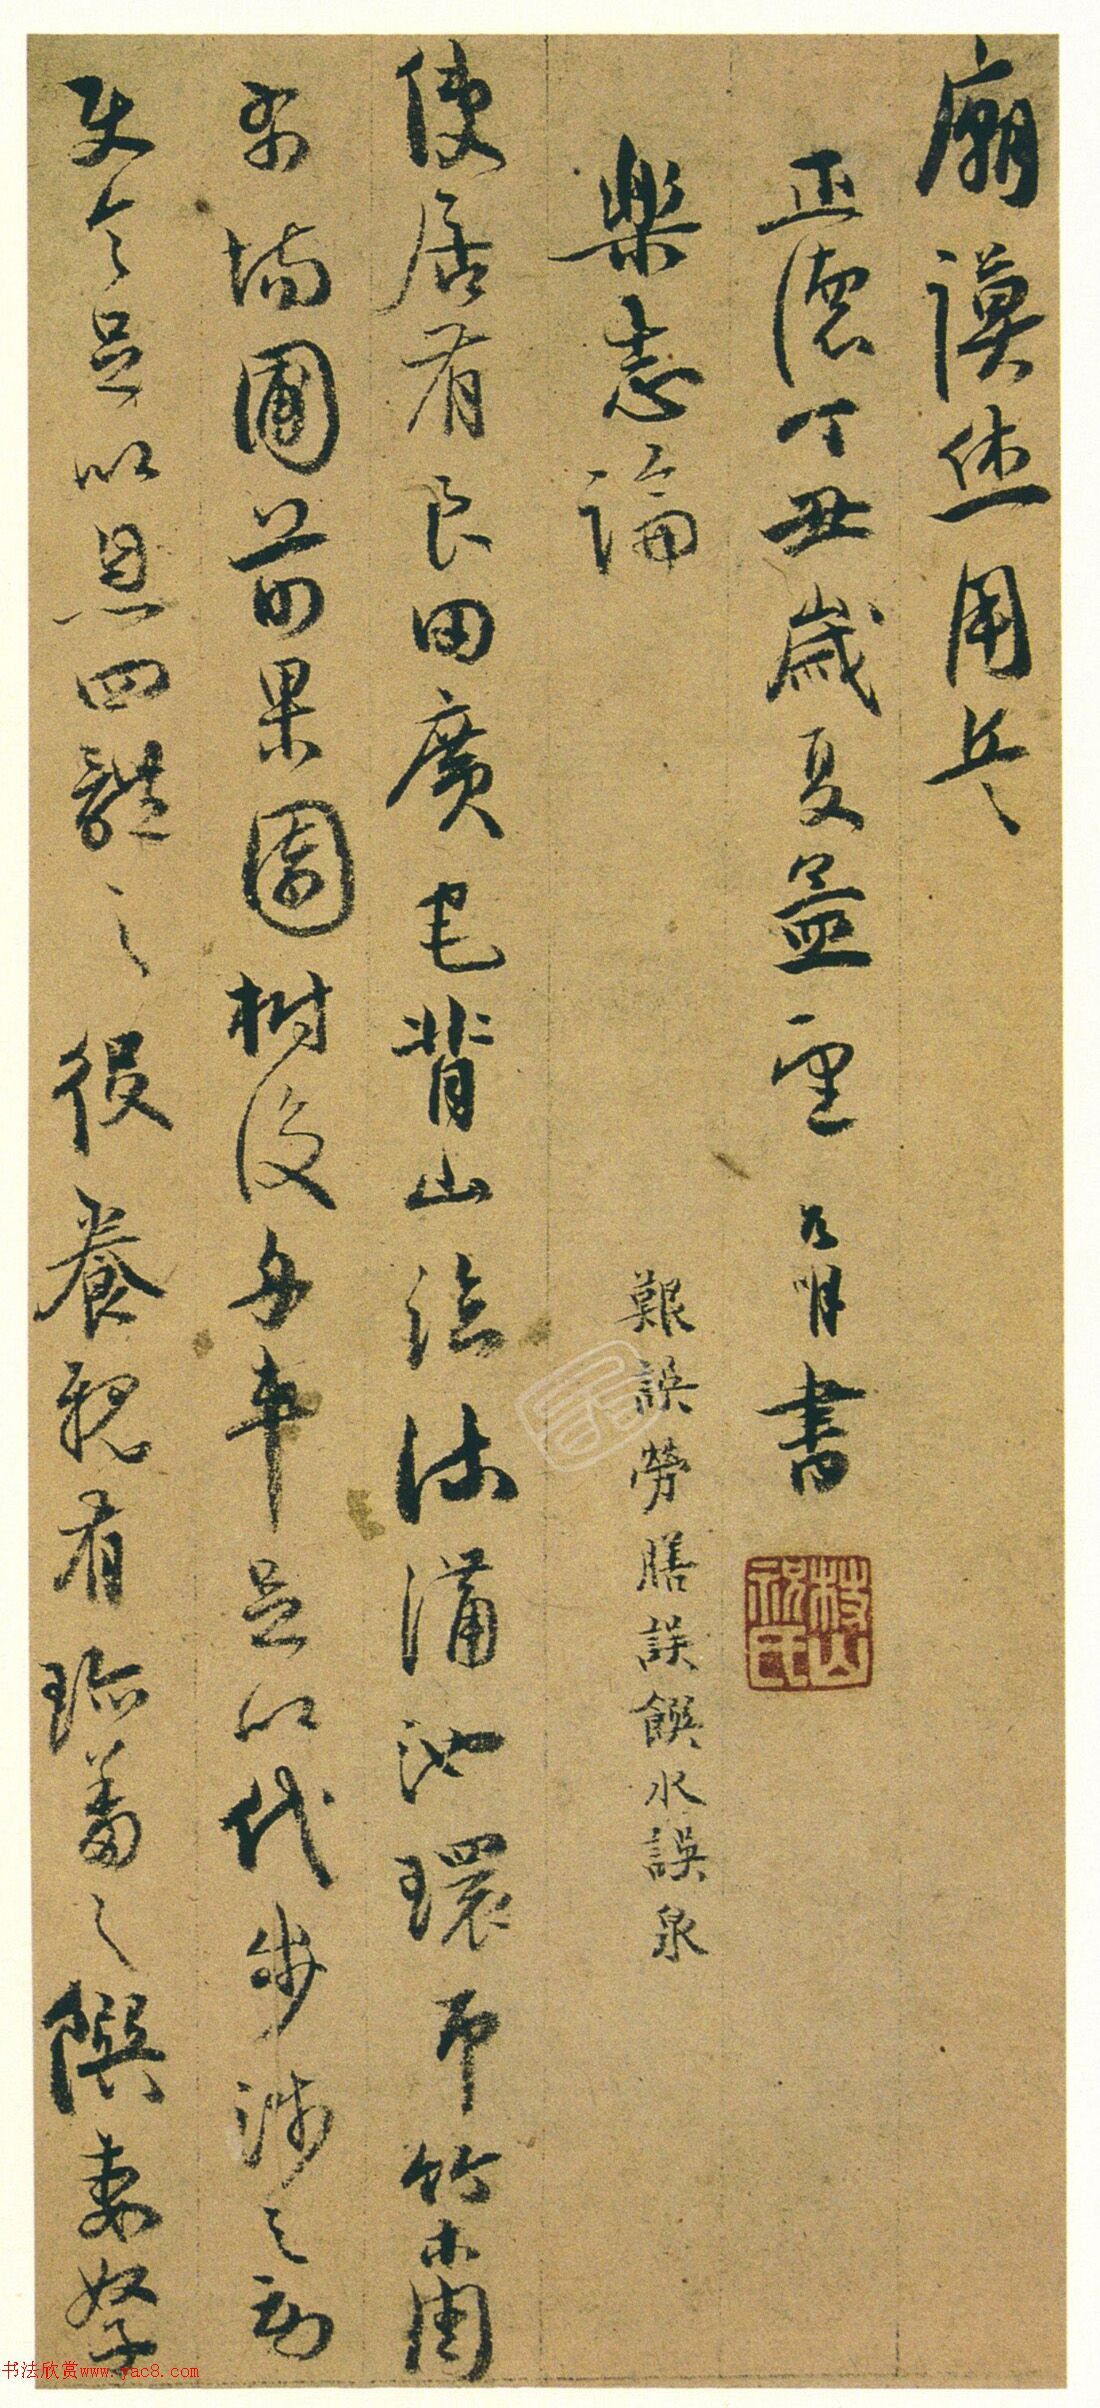 廟謨用兵
正德丁丑歲夏孟望 允明書
枝山
樂志論
艱誤勞膳誤饌水誤泉
使居有良田廣宅背山臨流溝池環帀竹木周
布場圃前果園樹後舟車足以代步涉之勞
使令足以息四體之役養親有珍羞之饌妻孥
书法欣赏www.yac8.com